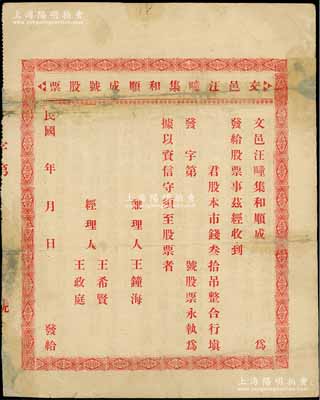 上海陽明拍賣
文邑汪疃集和順成號股票
文邑汪疃集和順成 為
發給股票事茲經收到
君股本市錢叁拾吊整合行塡
發 字第 號股票永執爲
據以資信守須至股票者
無理人王鐘海
經理人王希賢
王政庭
民國 年 月 日 發給
字第
號
上海陽明拍賣